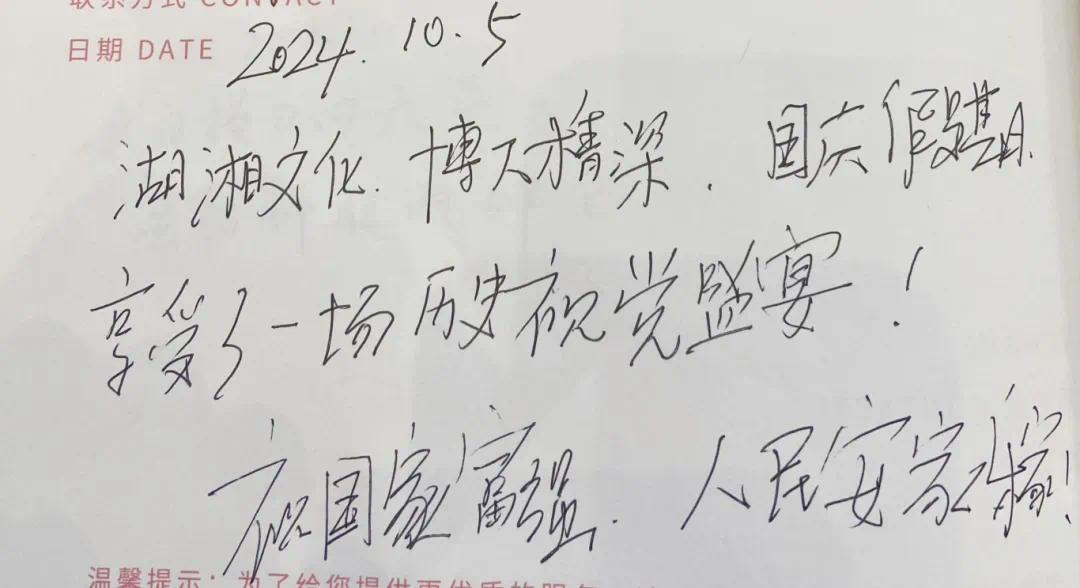 联系方式 CONTACT
日期 DATE 2024.10.5
湖湘文化.博大精深.国庆假期.
享受了一场历史视觉盛宴!
祝国家富强.人民安家乐!
温馨提示:为了给您提供更优质的服